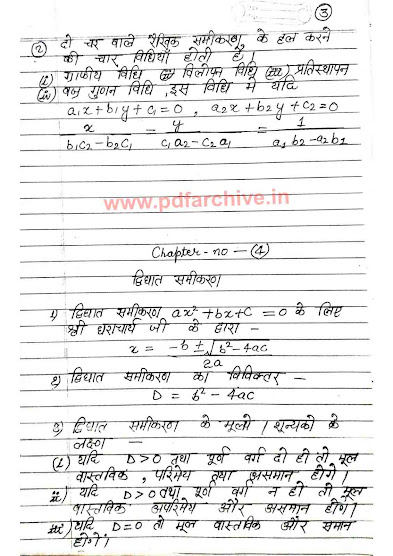 ③
② दो चर वाले रैखिक समीकरण के हल करने
की चार विधियाँ होती है।
(i) ग्राफीय विधि (ii) विलोपन विधि (iii) प्रतिस्थापन
(iv) वज्र गुणन विधि, इस विधि में यदि
a₁x+b₁y+c₁=0 , a₂x+b₂y+c₂=0
x/(b₁c₂-b₂c₁) = y/(c₁a₂-c₂a₁) = 1/(a₁b₂-a₂b₁)
www.pdfarchive.in
Chapter-no-(4)
द्विघात समीकरण
1) द्विघात समीकरण ax²+bx+c=0 के लिए
श्री धराचार्य जी के द्वारा -
x = (-b ± √(b²-4ac))/2a
2) द्विघात समीकरण का विविक्तर -
D = b²-4ac
3) द्विघात समीकरण के मूलो / शून्यको के
लक्षण -
(i) यदि D>0 तथा पूर्ण वर्ग हो तो मूल
वास्तविक, परिमेय तथा असमान होगे।
ii) यदि D>0 तथा पूर्ण वर्ग न हो तो मूल
वास्तविक अपरिमेय और असमान होगे।
iii) यदि D=0 तो मूल वास्तविक और समान
होगें।